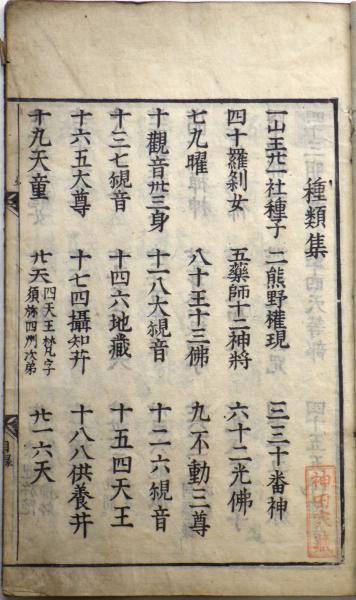 種類集
一山王廿一社種子 二熊野權現 三三十番神
四十羅刹女 五藥師十二神將 六十二光佛
七九曜 八十王十三佛 九不動三尊
十觀音卅三身 十一八大觀音 十二六觀音
十三七觀音 十四六地藏 十五四天王
十六五大尊 十七四攝知䒑 十八八供養䒑
十九天童 廿天 四天王梵字 須弥四州次第 廿一六天
目录
神田家藏